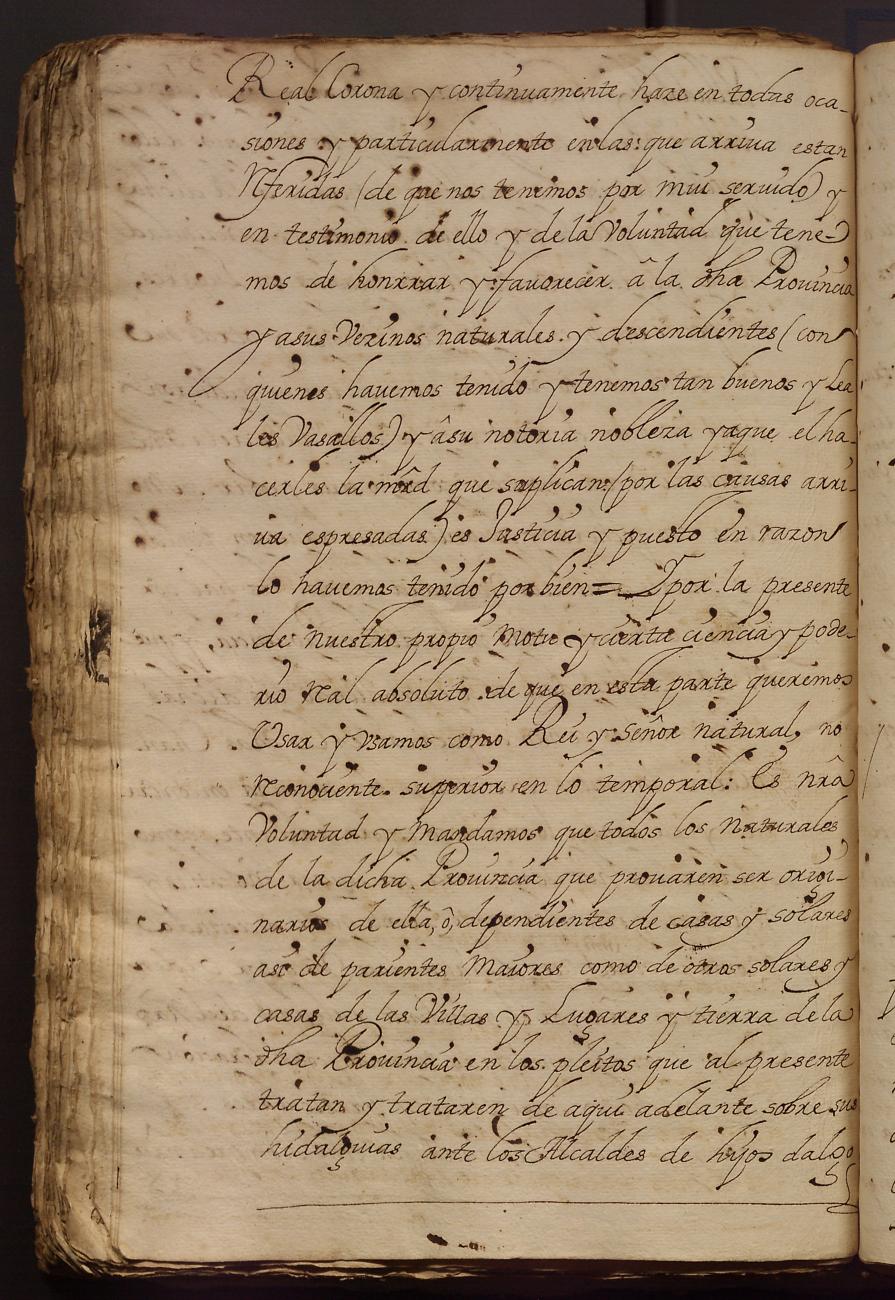 Real Corona y continuamente haze en todas oca-
siones y particularmente en las que arriua estan
Rferidas (de que nos tenemos por mui seruido) y
en testimonio de ello y de la Voluntad que tene
mos de honrrar y fauorecer â la dha Prouincia
y a sus Vezinos naturales y descendientes (con
quienes hauemos tenido y tenemos tan buenos y Lea
les Vasallos) y âsu notoria nobleza y aque el ha-
cerles la mrd que suplican (por las causas arri-
ua espresadas) es Justicia y puesto en razon
lo hauemos tenido por bien = Ypor la presente
de nuestro propio motu y cierta ciencia y pode-
rio Ral absoluto de que en esta parte queremos
Usar y vsamos como Rei y señor natural, no
Rconociente superior en lo temporal: Es nrâ
Voluntad y Mandamos que todos los Naturales
de la dicha Prouincia que prouaren ser origi-
narios de ella, ô, dependientes de casas y solares
asi de parientes Maiores como de otros solares y
casas de las Villas y Lugares y tierra de la
dha Prouincia en los pleitos que al presente
tratan y trataren de aqui adelante sobre sus
hidalguias ante los Alcaldes de hijos dalgo